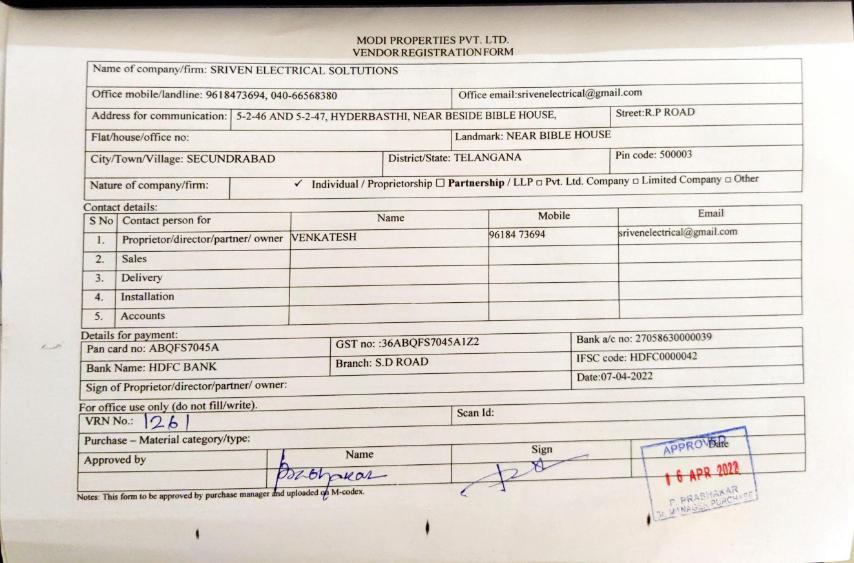 MODI PROPERTIES PVT. LTD.
VENDOR REGISTRATION FORM
Name of company/firm: SRIVEN ELECTRICAL SOLTUTIONS
Office mobile/landline: 9618473694, 040-66568380 Office email:srivenelectrical@gmail.com
Address for communication: 5-2-46 AND 5-2-47, HYDERBASTHI, NEAR BESIDE BIBLE HOUSE, Street:R.P ROAD
Flat/house/office no: Landmark: NEAR BIBLE HOUSE
City/Town/Village: SECUNDRABAD District/State: TELANGANA Pin code: 500003
Nature of company/firm: ✓ Individual / Proprietorship □ Partnership / LLP □ Pvt. Ltd. Company □ Limited Company □ Other
Contact details:
S No Contact person for Name Mobile Email
1. Proprietor/director/partner/ owner VENKATESH 96184 73694 srivenelectrical@gmail.com
2. Sales
3. Delivery
4. Installation
5. Accounts
Details for payment:
Pan card no: ABQFS7045A GST no: :36ABQFS7045A1Z2 Bank a/c no: 27058630000039
Bank Name: HDFC BANK Branch: S.D ROAD IFSC code: HDFC0000042
Sign of Proprietor/director/partner/ owner: Date:07-04-2022
For office use only (do not fill/write).
VRN No.: 1261 Scan Id:
Purchase – Material category/type:
Approved by Name Sign Date
Prabhakar
APPROVED
16 APR 2022
P. PRABHAKAR
Sr. MANAGER PURCHASE
Notes: This form to be approved by purchase manager and uploaded on M-codex.